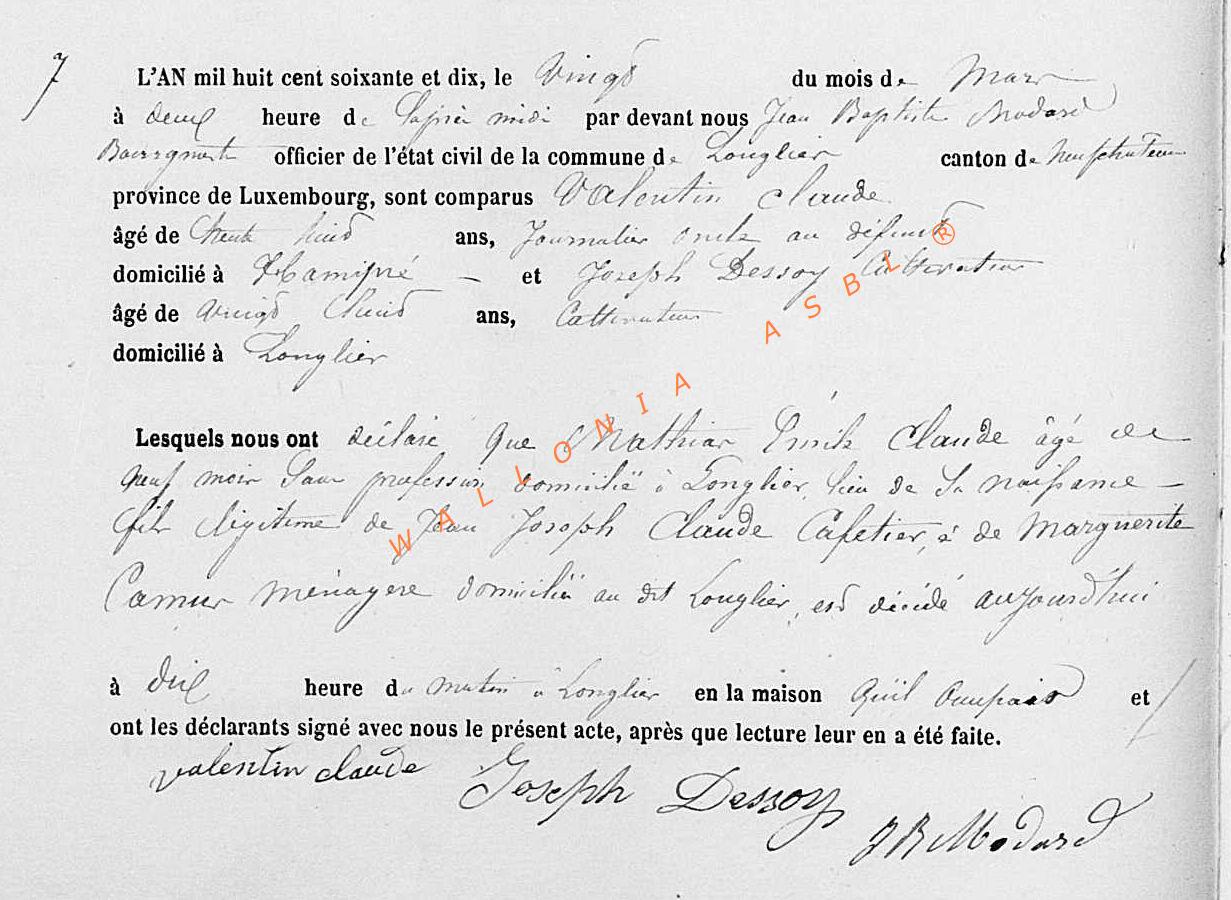 7
L'AN mil huit cent soixante et dix, le vingt du mois de Mars
à deux heure de l'aprés midi par devant nous Jean Baptiste Modard
Bourgmestre officier de l'état civil de la commune de Longlier canton de Neufchateau
province de Luxembourg, sont comparus Valentin Claude
âgé de trente huit ans, Journalier oncle au défunt
domicilié à Hamipré — et Joseph Dessoy Cultivateur
âgé de vingt huit ans, Cultivateur
domicilié à Longlier
Lesquels nous ont déclaré que Mathias Émile Claude âgé de
neuf mois Sans profession domicilié à Longlier, lieu de Sa naissance —
fils légitime de Jean Joseph Claude Cafetier, et de Marguerite
Camus ménagère domiciliés au dit Longlier, est décédé aujourd'hui
à dix heure du matin à Longlier en la maison qu'il occupait et
ont les déclarants signé avec nous le présent acte, après que lecture leur en a été faite.
valentin claude Joseph Dessoy
JB Modard
WALLONIA ASBL ®